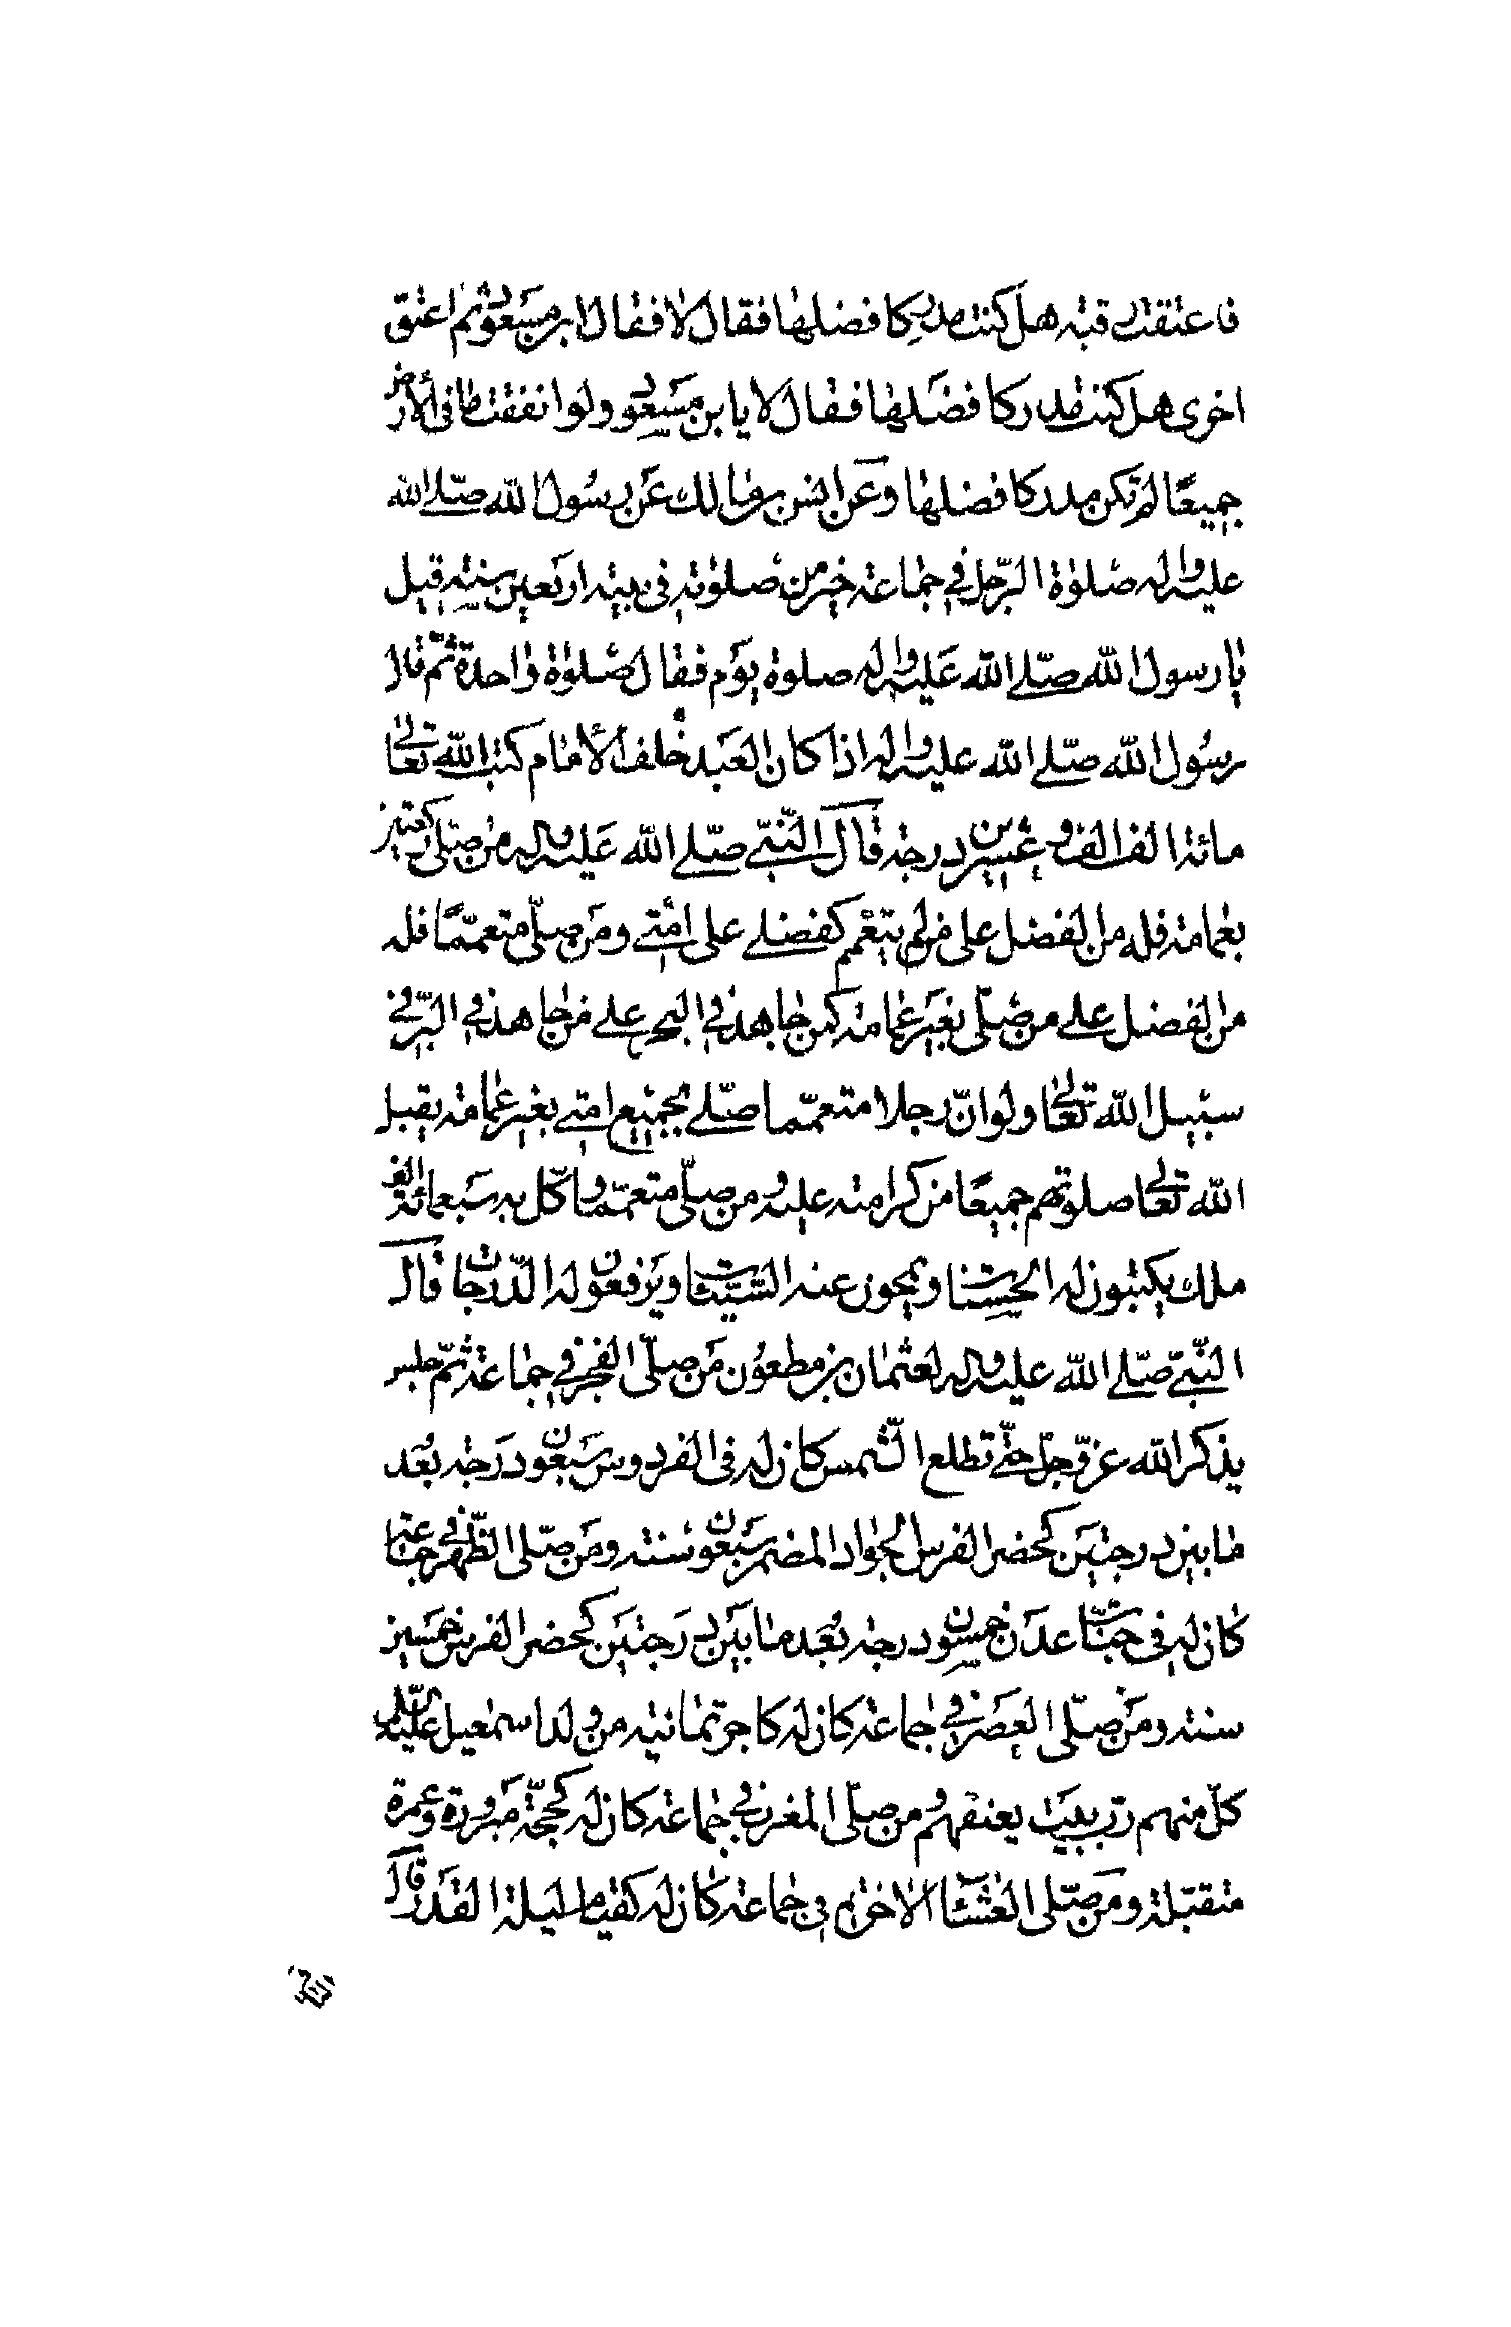 فاعتقت رقبة هل كنت مدركا فضلها فقال لا فقال ابن مسعود ثم اعتق
اخرى هل كنت مدركا فضلها فقال لا يا بن مسعود ولو انفقت ما فى الأرض
جميعًا لم تكن مدركا فضلها وعن انس بن مالك عن رسول الله صلّى الله
عليه واله صلوة الرّجل في جماعة خير من صلوته فى بيته اربعين سنة قيل
يا رسول الله صلّى الله عليه واله صلوة يوم فقال صلوة واحدة ثمّ قال
رسول الله صلّى الله عليه واله اذا كان العبد خلف الأمام كتب الله تعالى
مائة الف الف وعشرين درجة قال النّبيّ صلّى الله عليه واله من صلّى ركعتين
بعمامة فله من الفضل على من لم يتعمم كفضلي على امّتي ومن صلّى متعمّمًا فله
من الفضل على من صلّى بغير عمامة كمن جاهد في البحر على من جاهد في البرّ في
سبيل الله تعالى ولو انّ رجلا متعمّما صلّى بجميع امّتي بغير عمامة يقبل
الله تعالى صلوتهم جميعًا من كرامته عليه ومن صلّى متعمّما وكّل به سبعمائة الف
ملك يكتبون له الحسنات ويمحون عنه السّيّئات ويرفعون له الدّرجات قال
النّبيّ صلّى الله عليه واله لعثمان بن مظعون من صلّى الفجر في جماعة ثمّ جلس
يذكر الله عزّ وجلّ حتّى تطلع الشّمس كان له فى الفردوس سبعون درجة بُعد
ما بين درجتين كحضر الفرس الجواد المضمر سبعون سنة ومن صلّى الظّهر في جماعة
كان له في جنّات عدن خمسون درجة بُعد ما بين درجتين كحضر الفرس خمسين
سنة ومن صلّى العصر في جماعة كان له كاجر ثمانية من ولد اسمعيل عليه السّلام
كلّ منهم ربّ بيت يعتقهم ومن صلّى المغرب في جماعة كان له كحجّة مبرورة وعمرة
متقبّلة ومن صلّى العشاء الاخرة في جماعة كان له كقيام ليلة القدر قال